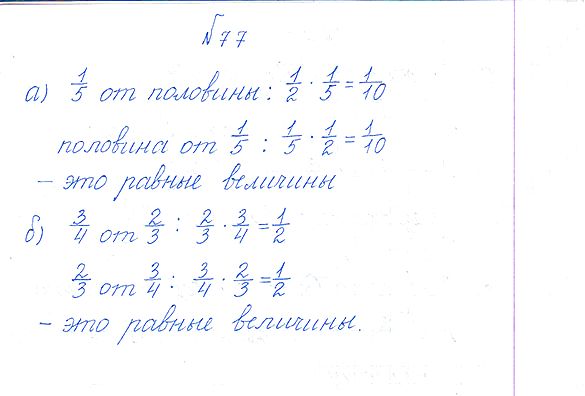 №77
а) 1/5 от половины: 1/2 · 1/5 = 1/10
половина от 1/5 : 1/5 · 1/2 = 1/10
– это равные величины
б) 3/4 от 2/3 : 2/3 · 3/4 = 1/2
2/3 от 3/4 : 3/4 · 2/3 = 1/2
– это равные величины.